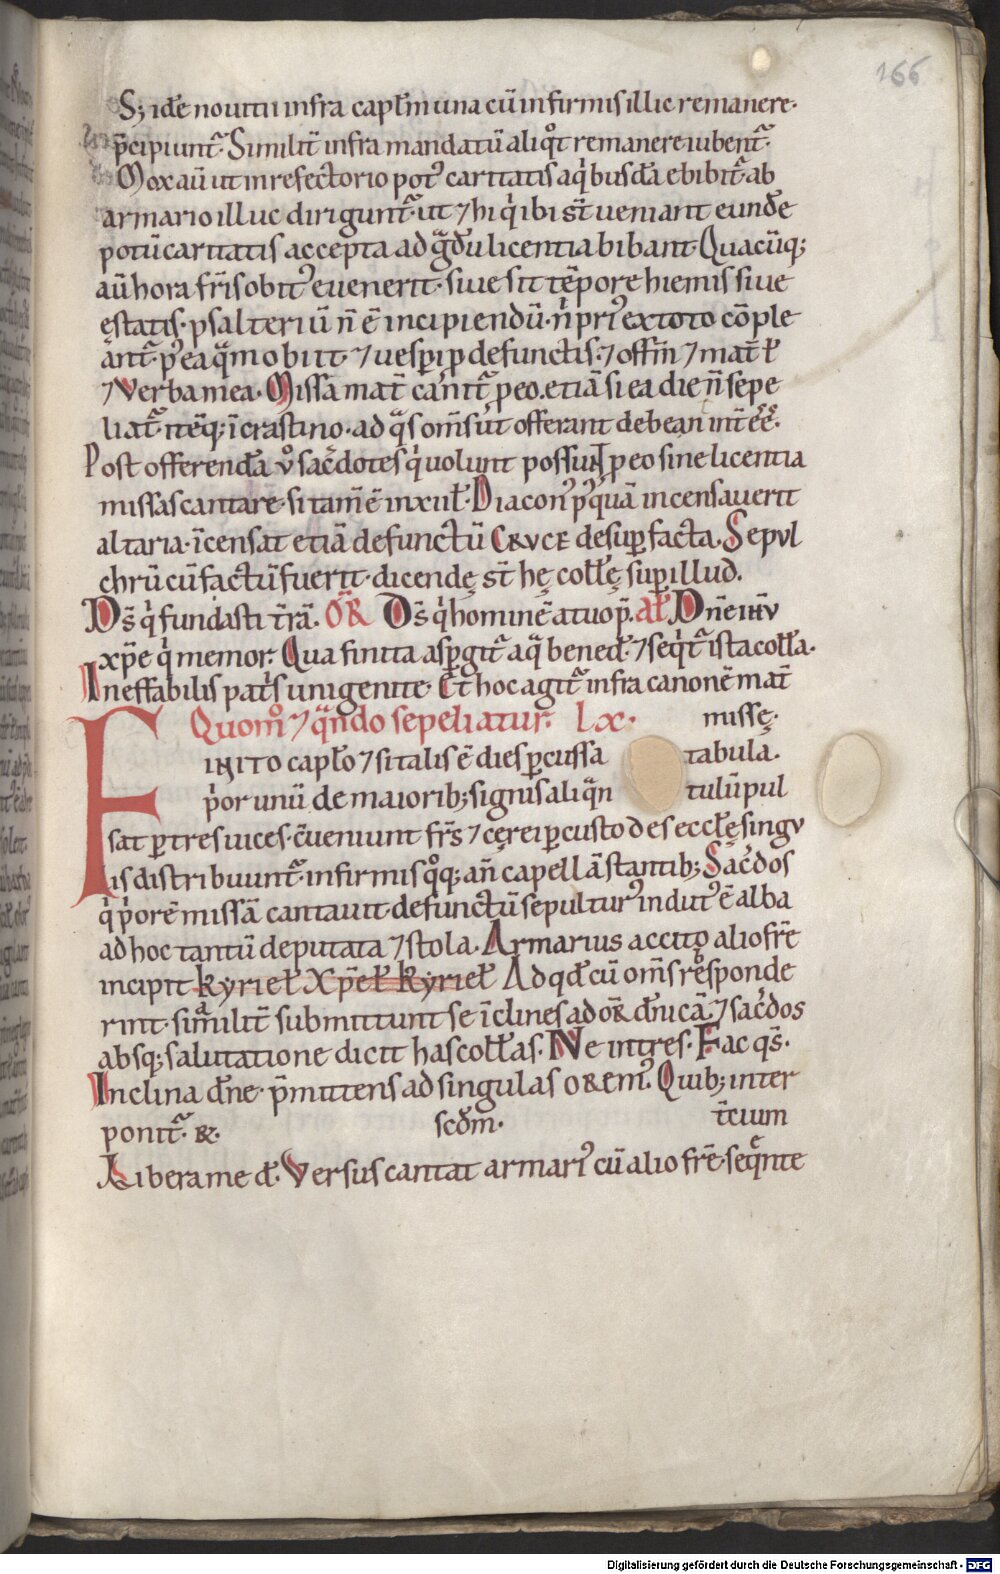 166
S; idē nouitii infra capłm una cū infirmis illic remanere·
p̄cipiunt᷑· Similit̄ infra mandatū aliq̊t remanere iubent᷑·
Mox aū ut in refectorio pot᷒ caritatis aq́busdā ebibit᷑ ab
armario illuc dirigunt᷑ ut ⁊ hi q́ ibi st̄ ueniant eundē
potū caritatis accepta ad gᷓdū licentia bibant· Quacūq;
aū hora fr̄is obit᷒ euenerit· siue sit tēpore hiemis siue
ęstatis· psalteriū n̄ ē incipiendū· n̍ pri᷒ ex toto cōple
ant᷑ p̱ ea qᷓ mox obiit· ⁊ uesp̱i ꝓ defunctis· ⁊ offm̄ ⁊ mat̄ ł
⁊ Verba mea· Missa mat̄ cant᷑ ꝑ eo· etiā si ea die n̄ sepe
liat᷑· itēq; ī crastino· ad qᷓs om̄s ut offerant debean int̄ēē·
Post offerendā ů sac̄dotes q́ uolunt possunt ꝑ eo sine licentia
missas cantare· si tam̄ ē in xii ł· Diacon᷒ p᷒quā incensauerit
altaria· īcensat etiā defunctū CRVCE desup̱ facta· Sepul
chrū cū factū fuerit· dicendę st̄ hę collę sup̱ illud·
Ds̄ q́ fundasti t̄rā· OR̄ Ds̄ q́ hominē a tuo p̄· ał Dn̄e iħu
xp̄e q́ memor· Qua finita asp̱git᷑ aqᷓ bened̄· ⁊ seq́t᷑ ista colła·
Ineffabilis pat̍s unigenite· Et hoc agit᷑ infra canonē mat̄
missę·
Quom̊ ⁊ qᷓndo sepeliatur· Lx·
FINITO capło ⁊ si talis ē dies p̱cussa tabula·
p̍or unū de maiorib; signis aliqᷓn tulū pul
sat p̱ tres uices· c̄ueniunt fr̄s ⁊ cęrei p̱ custodes ecclę singu
lis distribuunt᷑· infirmis q̊q; an̄ capellā stantib; Sac̄dos
q́ p̍orē missā cantauit· defunctū sepultur᷒ indut᷒ ē alba
ad hoc tantū deputata ⁊ stola· Armarius accito alio fr̄e
incipit kyrieł Xp̄eł kyrieł Ad qđ cū om̄s responde
rint· similit̄ submittunt se īclines ad or̄ dn̄icā· ⁊ sac̄dos
absq; salutatione dicit has collas· Ne intres· Fac qs̄·
Inclina dn̄e· p̄mittens ad singulas oREm᷒· Quib; inter
ponit᷑· R̄· scdm̄· t̄cium
Libera me d̄· Versus cantat armari᷒ cū alio fr̄e· seqᷓnte
Digitalisierung gefördert durch die Deutsche Forschungsgemeinschaft - DFG